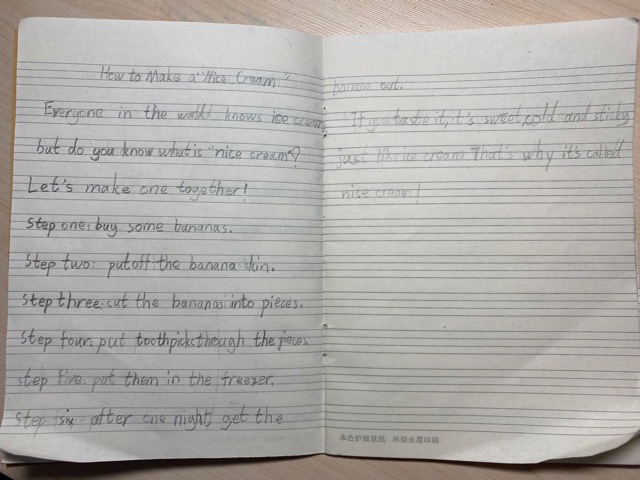 How to Make a "Nice Cream"
Everyone in the world knows ice cream,
but do you know what is "nice cream"?
Let's make one together!
Step one: buy some bananas.
Step two: put off the banana skin.
Step three: cut the bananas into pieces.
Step four: put toothpicks through the pieces.
step five: put them in the freezer.
Step six after one night, get the
banana out.
If you taste it, it's sweet, cold and sticky
just like ice cream. That's why it's called
nice cream!
本色护眼原纸 环保水墨印刷